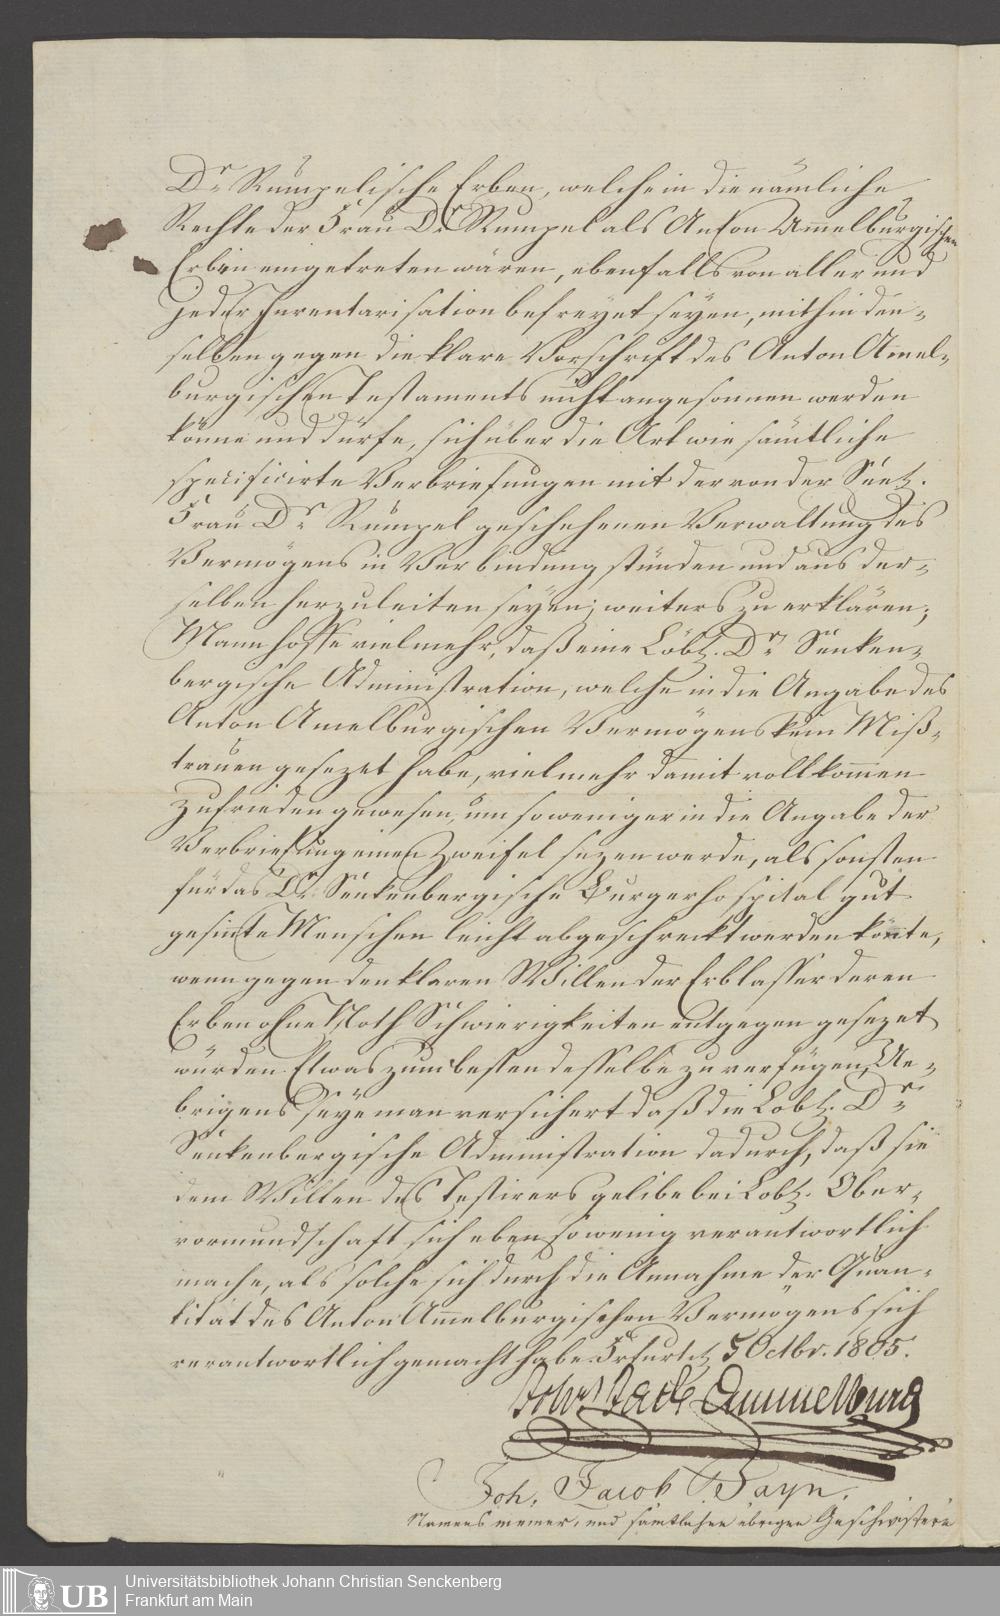 Dr Rumpelische Erben, welche in die nämliche
Rechte der Frau Dr Rumpel als Anton Am̅elburgischen
Erben eingetreten wären, ebenfalls von aller und
jeder Inventarisation befreyet seyen, mithin den-
selben gegen die klare Vorschrift des Anton Amel-
burgischen Testaments nicht angesonnen werden
könne und dürfe, sich über die Art wie sämtliche
specificirte Verbriefungen mit der von der
Frau Dr Rumpel geschehenen Verwaltung des
Vermögens in Verbindung stünden und aus der-
selben herzuleiten seyen, weiters zu erklären;
Mann hoffe vielmehr, daß eine Löbl. Dr Senken-
bergische Administration, welche in die Angabe des
Anton Amelburgischen Vermögens kein Miß-
trauen gesezet habe, vielmehr damit vollkom̅en
zufrieden gewesen, um so weniger in die Angabe der
Verbriefung einen Zweifel sezen werde, als sonsten
für das Dr Senkenbergische Burgerhospital gut
gesinnte Menschen leicht abgeschreckt werden könnte,
wenn gegen den klaren Willen der Erblasser deren
Erben ohne Noth Schwierigkeiten entgegen gesezet
würden Etwas zum besten desselbe zu verfügen, Ue-
brigens seye man versichert daß die Lobl. Dr
Senkenbergische Administration dadurch, daß sie
dem Willen des Testirers gelebe bei Lobl. Ober-
vormundschaft sich eben so wenig verantwortlich
mache, als solche sich durch die Annahme der Quan-
titat des Anton Am̅elburgischen Vermögens sich
verantwortlich gemacht habe. 5 Octbr. 1805.
Joh. Jacob Ammelburg
Joh. Jacob Bayn.
Namens meiner, und sämtlichen übrigen Geschwistern
UB
Universitätsbibliothek Johann Christian Senckenberg
Frankfurt am Main